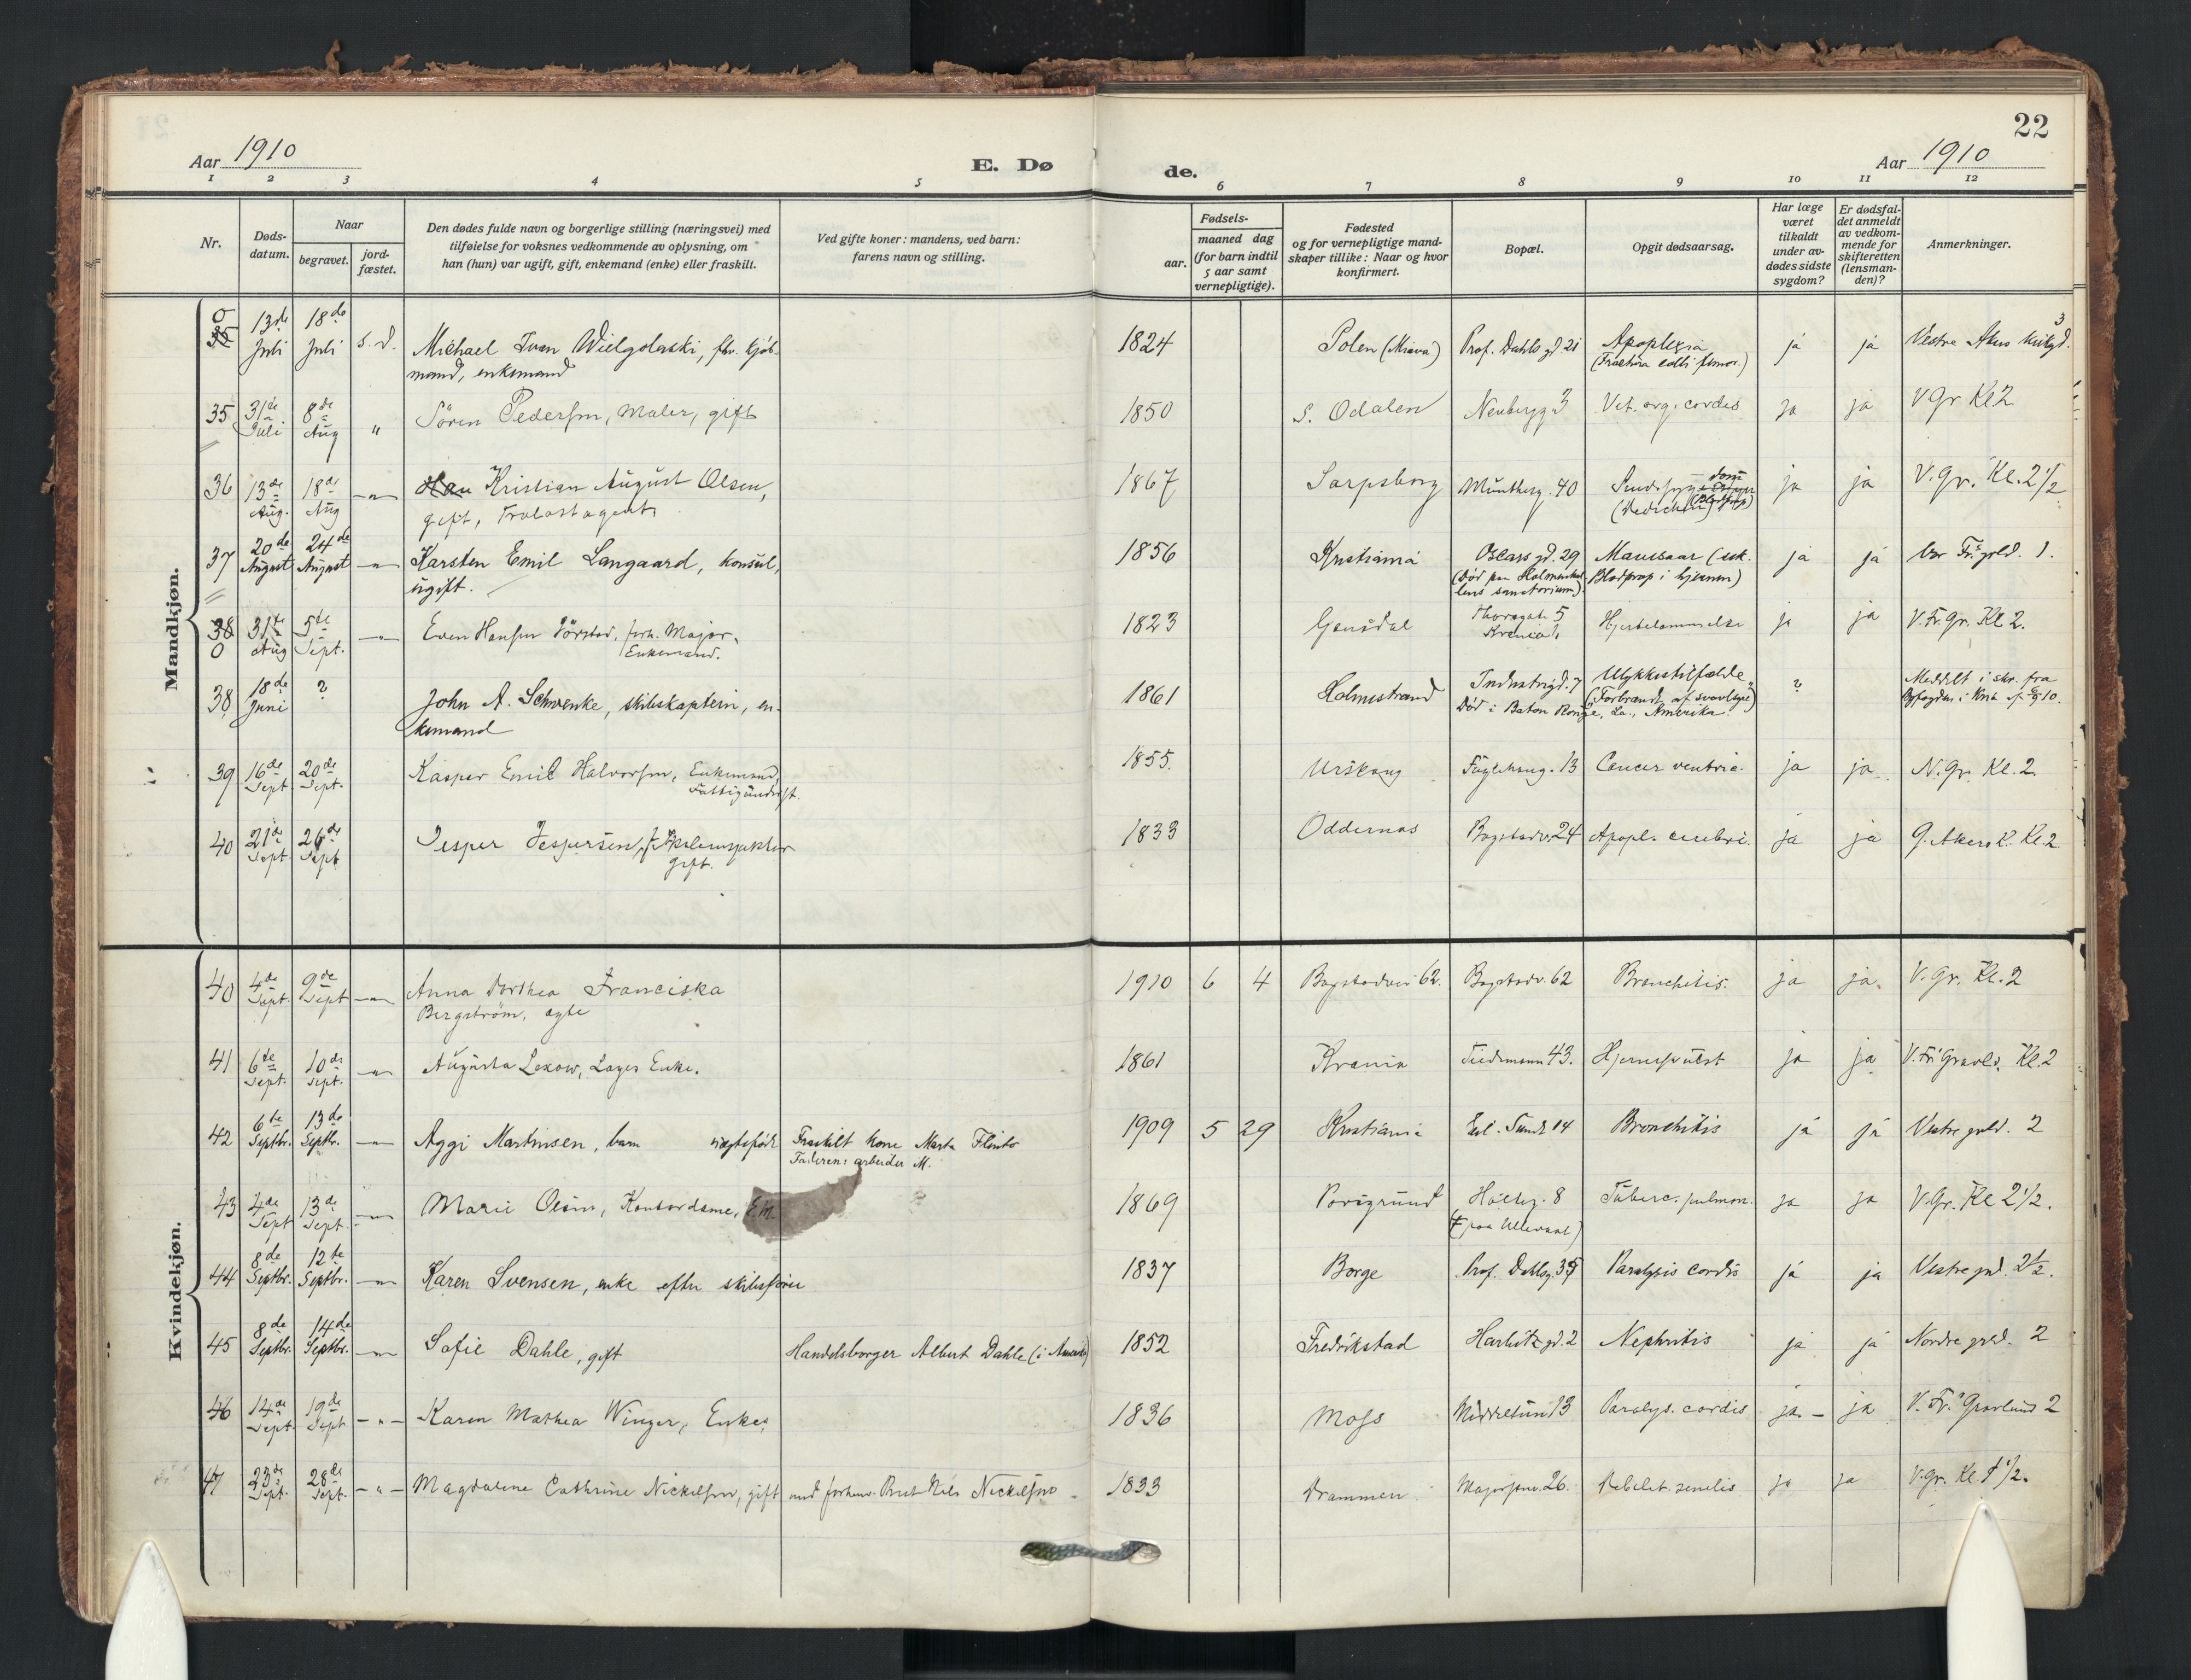 22
Aar 1910
E. Dø
de.
Aar 1910
1 2 3 4 5 6 7 8 9 10 11 12
Nr.
Døds-
datum.
Naar
begravet.
jord-
fæstet.
Den dødes fulde navn og borgerlige stilling (næringsvei) med
tilføielse for voksnes vedkommende av oplysning, om
han (hun) var ugift, gift, enkemand (enke) eller fraskilt.
Ved gifte koner: mandens, ved barn:
farens navn og stilling.
Fødsels-
aar.
maaned dag
(for barn indtil
5 aar samt
vernepligtige).
Fødested
og for vernepligtige mand-
skaper tillike: Naar og hvor
konfirmert.
Bopæl.
Opgit dødsaarsag.
Har læge
været
tilkaldt
under av-
dødes sidste
sygdom?
Er dødsfal-
det anmeldt
av vedkom-
mende for
skifteretten
(lensman-
den)?
Anmerkninger.
Mandkjøn.
0 35 13de Juli 18de Juli s. d. Michael Ivan Wielgolaski, fhv. kjøb-
mand, enkemand 1824 Polen (Mlawa) Prof. Dahls gd 21 Apoplexia
(Fractura colli femor.) ja ja Vestre Akers
35 31te Juli 8de Aug " Sören Pedersen, Maler, gift 1850 S. Odalen Neubergg. 3 Vit. org. cordis ja ja V Gr Kl 2
36 13de Aug. 18de Aug -"- Kristian August Olsen,
gift, Trælastagent 1867 Sarpsborg Muntherg. 40 ja ja V. Gr. Kl. 2 1/2
37 20de August 24de August -"- Karsten Emil Langaard, konsul,
ugift. 1856 Kristiania Oscars gd. 29
(Död paa Holmenkol-
lens sanatorium)
(
Blodprop i hjernen) ja ja Vor Fr. gvld. 1.
38 0 31te Aug 5te Sept. -"- Even Hansen Börstad, forh. Major,
Enkemand. 1823 Gausdal Thorsgate 5
Krania Hjertelammelse ja ja V. Fr. Gr. Kl 2.
38 18de Juni ? John A. Schwenke, skibskaptein, en-
kemand 1861 Holmestrand Industrigd. 7 Ulykkestilfælde
(Forbrændt af svovlsyre)
Död i Baton Rouge, La., Amerika. ? Meddelt i skr. fra
Byfogden i Kria
39 16de Sept. 20de Sept. Kasper Emil Halvorsen, Enkemand,
Fattigunderst. 1855. Urskoug Fuglehaug. 13 Cancer ventric. ja ja N. Gr. Kl. 2.
40 21de Sept. 26de Sept Jesper Jespersen, f. Skoleinspektør
gift. 1833 Oddernes Bogstadv. 24 Apopl. cerebri. ja ja G. Akers K. Kl. 2
Kvindekjøn.
40 4de Sept. 9de Sept -"- Anna Dorthea Franciska
Bergström, ægte 1910 6 4 Bogstadvei 62. Bogstadv. 62 Bronchitis. ja ja. V. Gr. Kl. 2
41 6te Sept. 10de Sept. -"- Augusta Lexow, Læges Enke. 1861 Krania Tiedemann 43. Hjernesvulst ja ja V. Fr. Gravls. Kl. 2
42 6te Septbr. 13de Septbr. -"- Aggi Martinsen, barn uægtefødt Fraskilt kone Marta Flinto
Faderen: arbeider M. 1909 5 29 Kristiania Eil. Sundt 14 Bronchitis ja ja Vestre gvld. 2
43 4de Sept 13de Sept. -"- Marie Olsen, Kontordame, 1869 Porsgrund Holteg. 8
(† paa Ullevaal) Tuberc. pulmon. ja ja V. Gr. Kl 2 1/2.
44 8de Septbr. 12te Septbr. -"- Karen Svensen, enke efter skibsfører 1837 Borge Prof. Dahlsg. Paralysis cordis ja ja Vestre gvld. 2 1/2.
45 8de Septbr. 14de Septbr. -"- Sofie Dahle, gift Handelsborger Albert Dahle (i Amerika) 1852 Fredrikstad Harbitz gd. 2 Nephritis ja ja Nordre gvld. 2
46 14de Sept. 19de Sept -"- Karen Mathea Winger, Enke, 1836 Moss Middelthun 13 Paralys. cordis ja. - ja V. Fr. Gravlund 2
47 23de Sept. 28de Sept. -"- Magdalene Cathrine Nickelsen, gift med forhenv. Prest Nils Nickelsen 1833 Drammen Majorstuv. 26. Debilit. senilis ja ja V. Gr. Kl. 1 1/2.